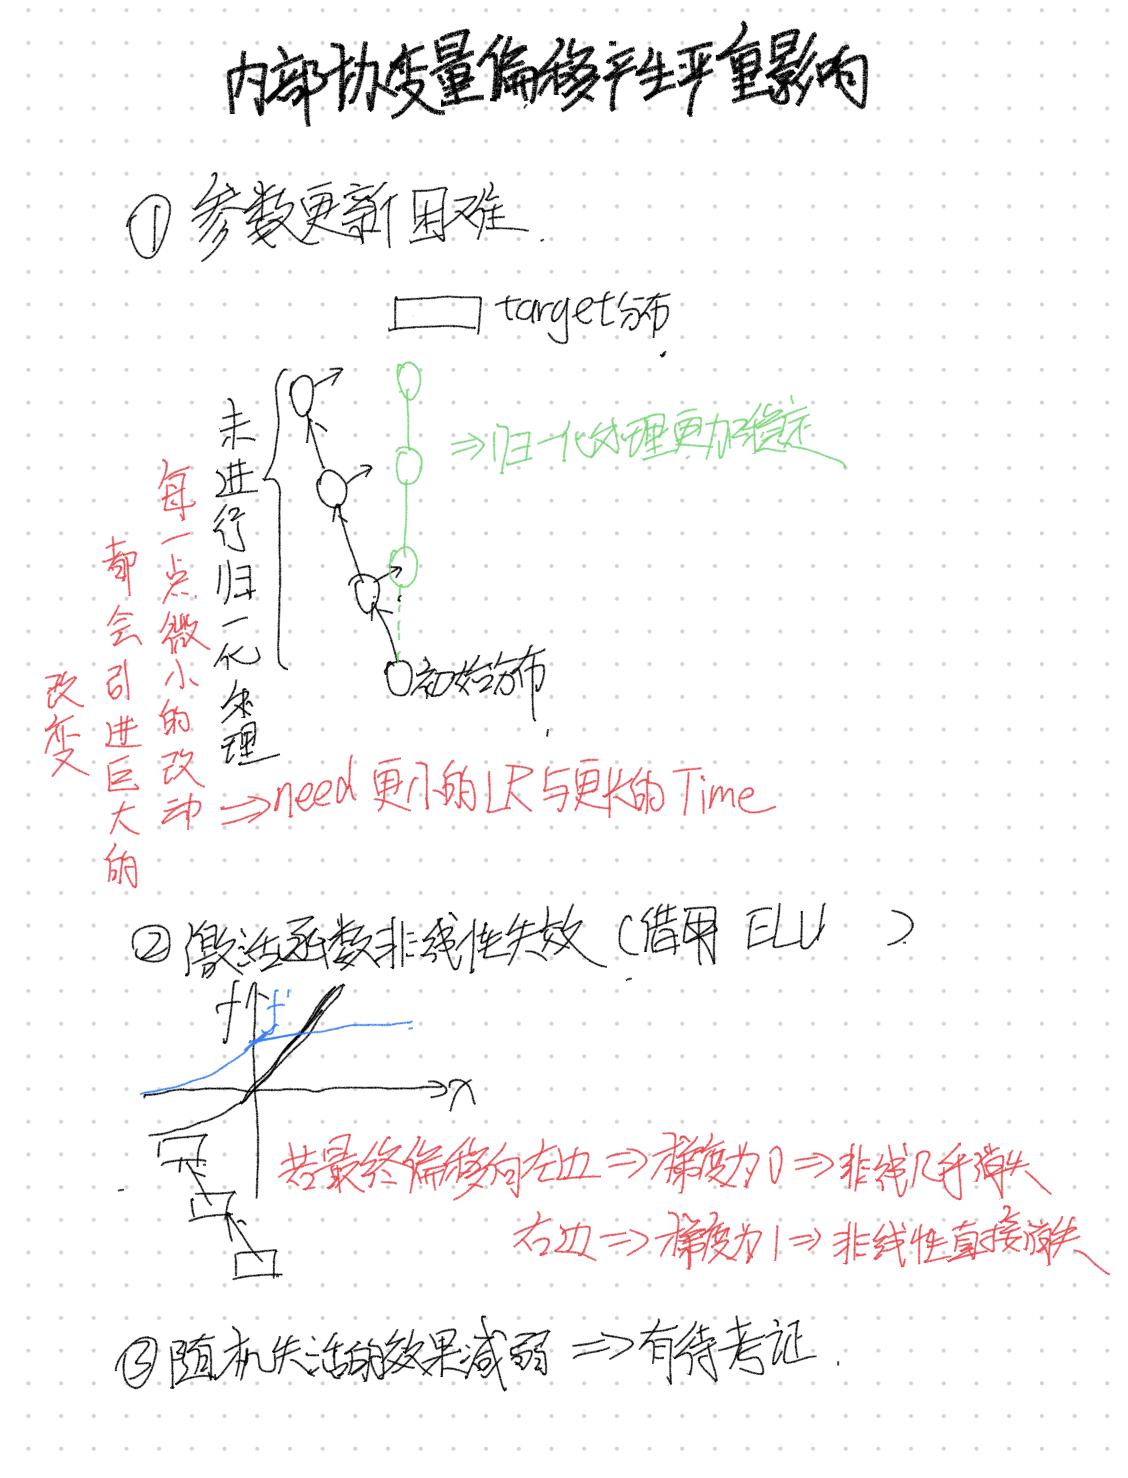 内部协变量偏移产生严重影响
① 参数更新困难.
target分布
未进行归一化处理
⇒归一化处理更加稳定
每一点微小的改动
都会引进巨大的
改变
初始分布
⇒need 更小的LR与更长的Time
② 激活函数非线性失效（借用 ELU ）
f
f'
x
若最终偏移向左边⇒梯度为0⇒非线几乎消失
右边⇒梯度为1⇒非线性直接消失
③ 随机失活的效果减弱⇒有待考证.